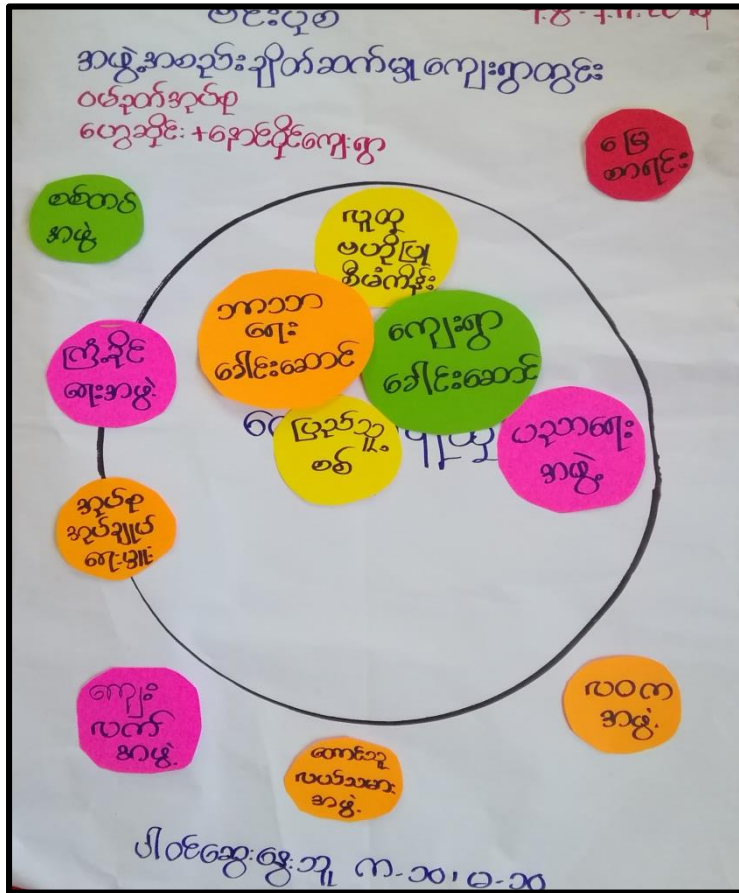 အဖွဲ့အစည်းချိတ်ဆက်မှု ကျေးရွာတွင်း
ဝမ်ခုတ်အုပ်စု
ဟွေဆိုင်း + နောင်ဝိုင်ကျေးရွာ
မြေ
စာရင်း
စစ်တပ်
အဖွဲ့
လူထု
ဗဟိုပြု
စီမံကိန်း
ဘာသာ
ရေး
ခေါင်းဆောင်
ကျေးရွာ
ခေါင်းဆောင်
ကြံ့ခိုင်
ရေးအဖွဲ့
ပြည်သူ့
စစ်
ပညာရေး
အဖွဲ့
အုပ်စု
အုပ်ချုပ်
ရေးမှူး
ကျေး
လက်
အဖွဲ့
လဝက
အဖွဲ့
တောင်သူ
လယ်သမား
အဖွဲ့
ပါဝင်ဆွေးနွေးသူ ကာ-၁၀၊ မ-၁၀